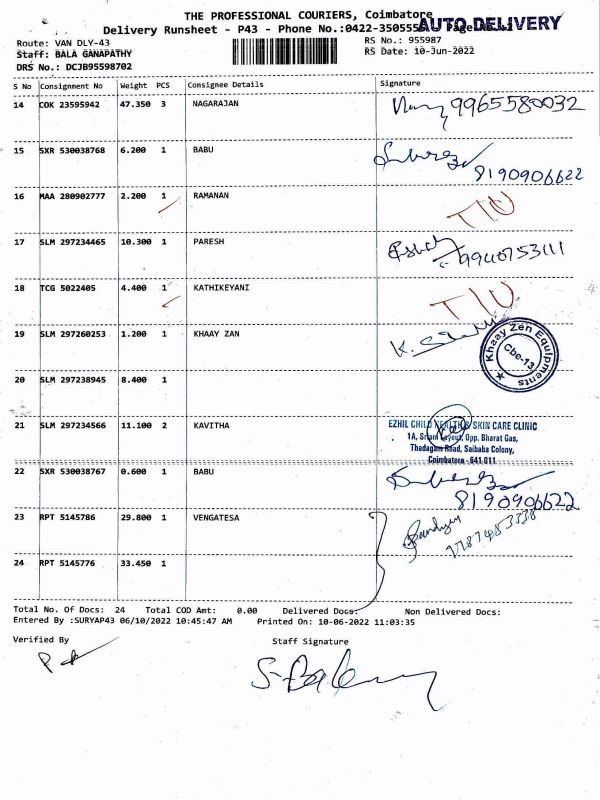 THE PROFESSIONAL COURIERS, Coimbatore
AUTO DELIVERY
Delivery Runsheet - P43 - Phone No.:0422-350555
Route: VAN DLY-43
RS No.: 955987
Staff: BALA GANAPATHY
RS Date: 10-Jun-2022
DRS No.: DCJB95598702
S No Consignment No Weight PCS Consignee Details Signature
14 COK 23595942 47.350 3 NAGARAJAN 9965580032
15 SXR 530038768 6.200 1 BABU
8190906622
16 MAA 280902777 2.200 1 RAMANAN
17 SLM 297234465 10.300 1 PARESH 9940753111
18 TCG 5022405 4.400 1 KATHIKEYANI
19 SLM 297260253 1.200 1 KHAAY ZAN
Khaay Zen Equipments
Cbe-13
20 SLM 297238945 8.400 1
21 SLM 297234566 11.100 2 KAVITHA EZHIL CHILD HEALTH & SKIN CARE CLINIC
1A, Sriam Layout, Opp. Bharat Gas,
Thadagam Road, Saibaba Colony,
Coimbatore - 641 011
22 SXR 530038767 0.600 1 BABU
8190906622
23 RPT 5145786 29.800 1 VENGATESA
24 RPT 5145776 33.450 1
Total No. Of Docs: 24 Total COD Amt: 0.00 Delivered Docs: Non Delivered Docs:
Entered By :SURYAP43 06/10/2022 10:45:47 AM Printed On: 10-06-2022 11:03:35
Verified By Staff Signature